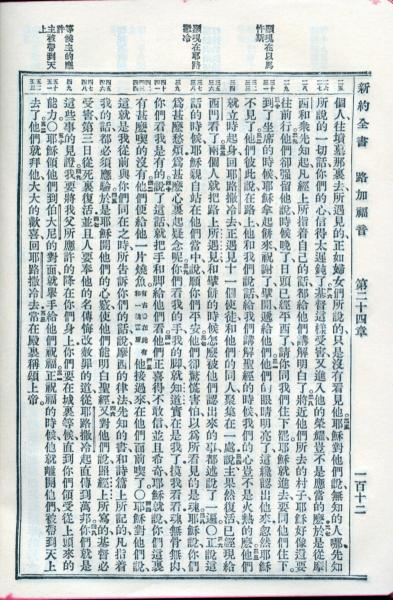 新約全書 路加福音 第二十四章 一百十二
顯現在以馬
忤斯
顯現在耶路
撒冷
等候主的應
許
主被帶到天
上
個人往墳墓那裏去所遇見的正如婦女們所說的只是沒有看見他耶穌對他們說無知的人哪先知
所說的一切話你們的心信得太遲鈍了基督這樣受害又進入他的榮耀豈不是應當的麼於是從摩
西和衆先知起凡經上所指着自己的話都給他們講解明白了將近他們所去的村子耶穌好像還要
往前行他們卻強留他說時候晚了日頭已經平西了請你同我們住下罷耶穌就進去要同他們住下
到了坐席的時候耶穌拿起餅來祝謝了擘開遞給他們他們的眼睛明亮了這纔認出他來忽然耶穌
不見了他們彼此說在路上他和我們說話給我們講解聖經的時候我們的心豈不是火熱的麼他們
就立時起身回耶路撒冷去正遇見十一個使徒和他們的同人聚集在一處說主果然復活已經現給
西門看了兩個人就把路上所遇見和擘餅的時候怎麼被他們認出來的事都述說了一遍〇正說這
話的時候耶穌親自站在他們當中說願你們平安他們卻驚慌害怕以爲所看見的是魂耶穌說你們
爲甚麼愁煩爲甚麼心裏起疑念呢你們看我的手我的脚就知道實在是我了摸我看看魂無骨無肉
你們看我是有的說了這話就把手和脚給他們看他們正喜得不敢信並且希奇耶穌就說你們這裏
有甚麼喫的沒有他們便給他一片燒魚有古卷在此有和一塊蜜房他接過來在他們面前喫了〇耶穌對他們說
這就是我從前與你們同在之時所告訴你們的話說摩西的律法先知的書和詩篇上所記的凡指着
我的話都必須應驗於是耶穌開他們的心竅使他們能明白聖經又對他們說照經上所寫的基督必
受害第三日從死裏復活並且人要奉他的名傳悔改赦罪的道從耶路撒冷起直傳到萬邦你們就是
這些事的見證我要將我父所應許的降在你們身上你們要在城裏等候直到你們領受從上頭來的
能力〇耶穌領他們到伯大尼的對面就舉手給他們祝福正祝福的時候他就離開他們被帶到天上
去了他們就拜他大大的歡喜回耶路撒冷去常在殿裏稱頌上帝